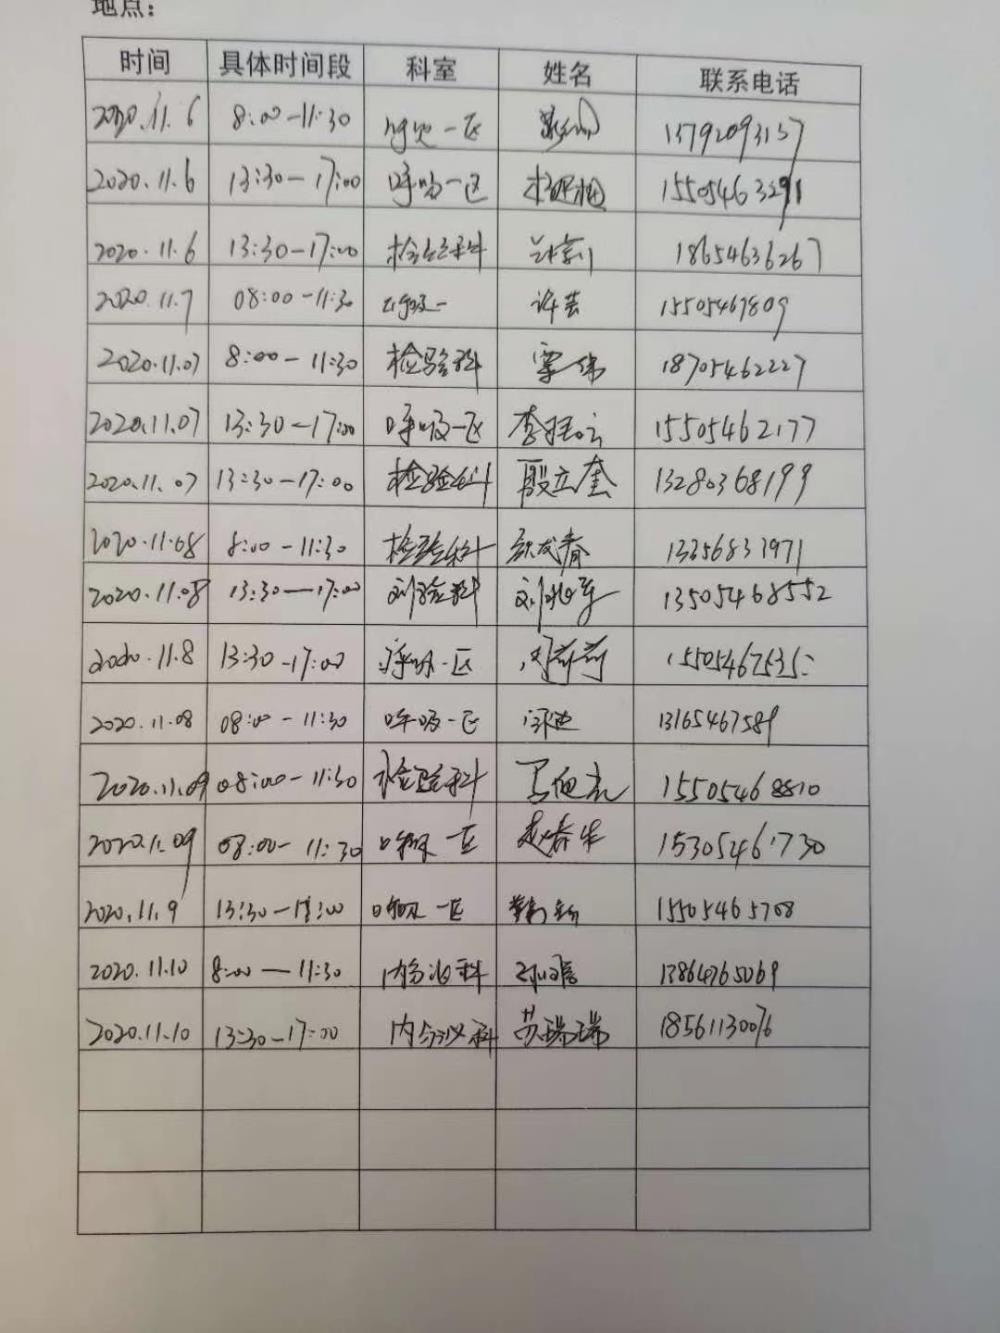 地点：
时间 具体时间段 科室 姓名 联系电话
2020.11.6 8:00-11:30 呼吸一区 13792093157
2020.11.6 13:30-17:00 呼吸一区 15505463291
2020.11.6 13:30-17:00 检验科 18654636267
2020.11.7 08:00-11:30 呼吸一 许芸 15505467809
2020.11.07 8:00-11:30 检验科 覃伟 18705462227
2020.11.07 13:30-17:00 呼吸一区 15505462177
2020.11.07 13:30-17:00 检验科 殷立奎 13280368199
2020.11.08 8:00-11:30 检验科 13356831971
2020.11.08 13:30-17:00 检验科 13505468552
2020.11.8 13:30-17:00 呼吸一区
2020.11.08 08:00-11:30 呼吸一区 13165467589
2020.11.09 08:00-11:30 检验科 15505468810
2020.11.09 08:00-11:30 呼吸一区 赵春华 15305461730
2020.11.9 13:30-17:00 呼吸一区 15505465708
2020.11.10 8:00-11:30 内分泌科 13864765069
2020.11.10 13:30-17:00 内分泌科 苏瑞瑞 18561130076